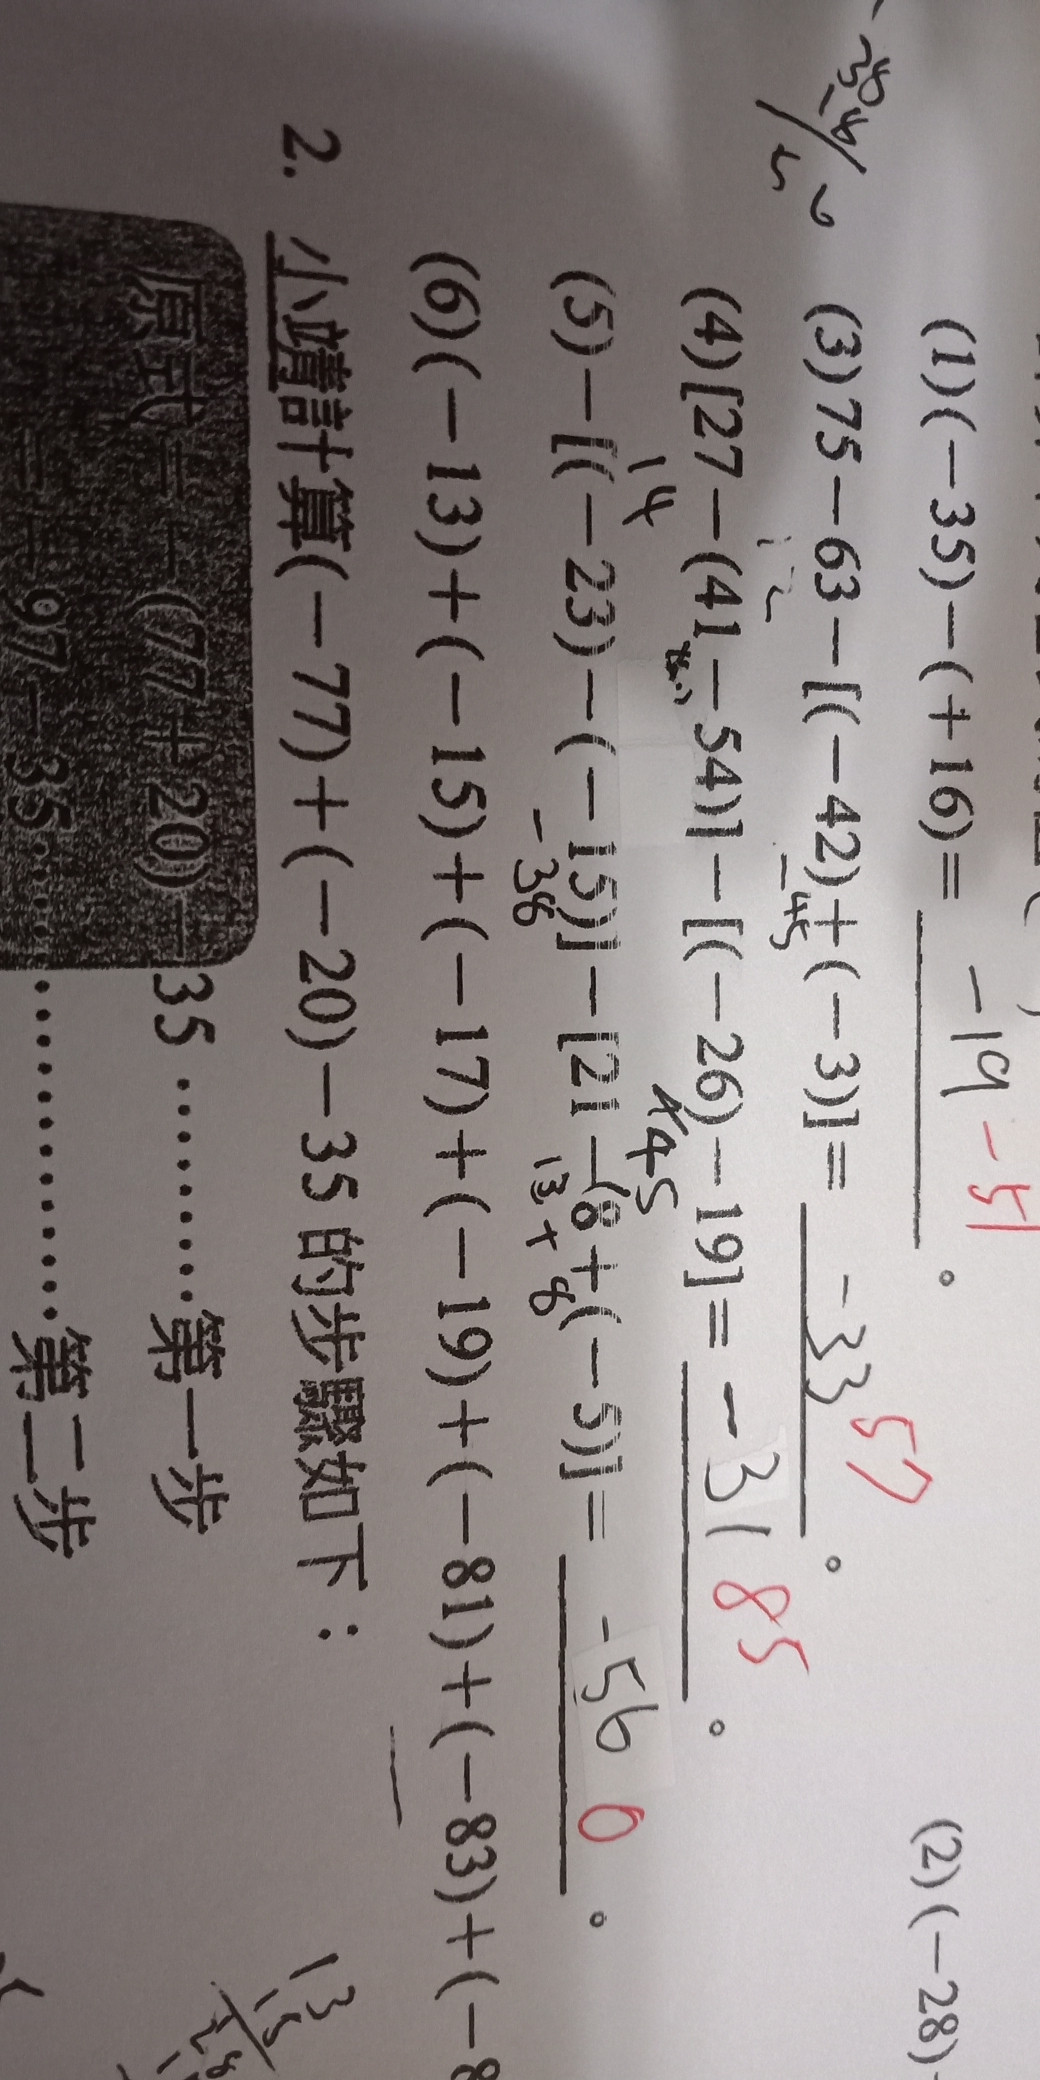 (1)(－35)－(＋16)＝ －19 －51 。 (2)(－28)
(3)75－63－[(－42)＋(－3)]＝ －33 57 。
12 －45
(4)[27－(41－54)]－[(－26)－19]＝ －31 85 。
14 45
(5)－[(－23)－(－15)]－[21－(8＋(－5)]＝ －56 0 。
－38 13＋8
(6)(－13)＋(－15)＋(－17)＋(－19)＋(－81)＋(－83)＋(－8
2. 小靖計算(－77)＋(－20)－35的步驟如下：
原式＝－(77＋20)－35 ⋯⋯⋯第一步
＝－97－35⋯⋯⋯⋯⋯第二步
13
15
28